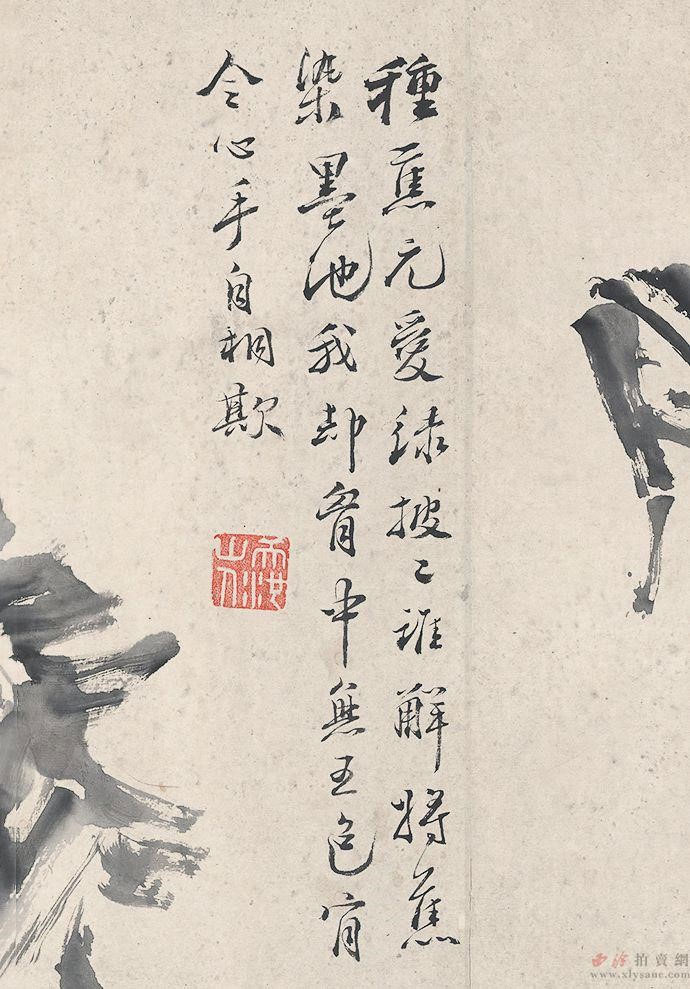 種蕉元愛綠披〻誰解將蕉
染墨池我却胷中無五色肯
令心手自相欺
西泠拍賣網
www.xlysauc.com